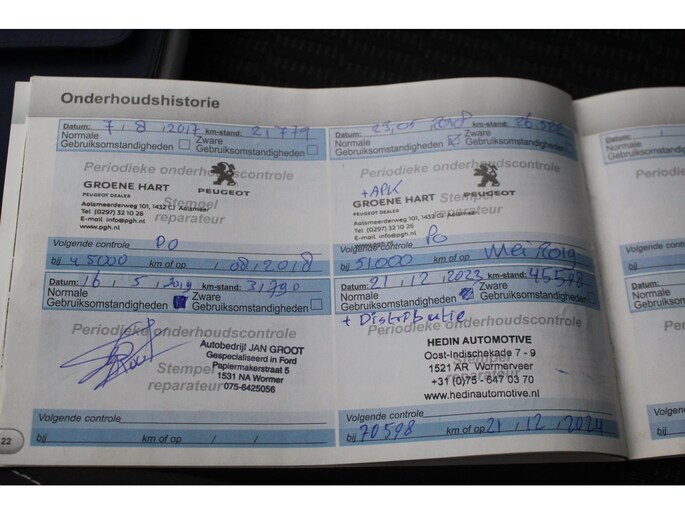 Onderhoudshistorie
Datum: 7 / 8 / 2017 km-stand: 21779
Normale Gebruiksomstandigheden
Zware Gebruiksomstandigheden
Periodieke onderhoudscontrole
GROENE HART
PEUGEOT DEALER
PEUGEOT
Aalsmeerderweg 101, 1432 CJ Aalsmeer
Tel (0297) 32 10 26
E-mail info@pgh.nl
www.pgh.nl
Stempel reparateur
Volgende controle PO
bij 45000 km of op / 08 / 2018
Datum: 23/05 2018 km-stand:
Normale Gebruiksomstandigheden
Zware Gebruiksomstandigheden
Periodieke onderhoudscontrole
+ APK
GROENE HART
PEUGEOT DEALER
PEUGEOT
Aalsmeerderweg 101, 1432 CJ Aalsmeer
Tel (0297) 32 10 26
E-mail info@pgh.nl
www.pgh.nl
Stempel reparateur
Volgende controle PO
bij 51.000 km of op Mei 2019
Datum: 16 / 5 / 2019 km-stand: 31790
Normale Gebruiksomstandigheden
Zware Gebruiksomstandigheden
Periodieke onderhoudscontrole
Autobedrijf JAN GROOT
Gespecialiseerd in Ford
Papiermakerstraat 5
1531 NA Wormer
075-6425056
Stempel reparateur
Volgende controle
bij / km of op / /
Datum: 21 / 12 / 2023 km-stand: 45598
Normale Gebruiksomstandigheden
Zware Gebruiksomstandigheden
+ Distributie
Periodieke onderhoudscontrole
HEDIN AUTOMOTIVE
Oost-Indischekade 7 - 9
1521 AR Wormerveer
+31 (0)75 - 647 03 70
www.hedinautomotive.nl
Stempel reparateur
Volgende controle
bij 70598 km of op 21 / 12 / 2024
22
Datum:
Normale
Gebruiksom
Volgende
bij
Datum:
Normale
Gebruiksom
Volgende
bij